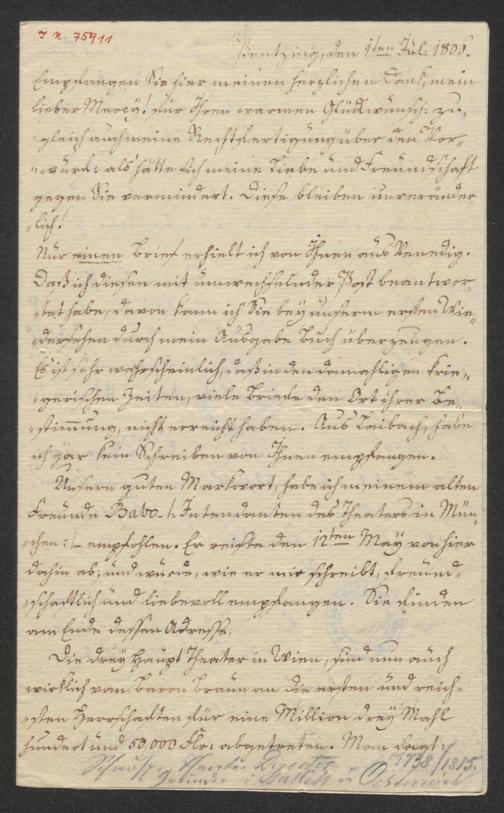 I. N. 75911
Pentzing, den 1ten Jul: 1806.
Empfangen Sie hier meinen herzlichen Dank, mein
lieber Mercy! für Ihren warmen Glückwunsch: zu-
gleich auch meine Rechtfertigung über den Vor-
-wurf: als hätte sich meine Liebe und Freundschaft
gegen Sie vermindert. Diese bleiben unveränder-
-lich!
Nur einen Brief erhielt ich von Ihnen aus Venedig.
Daß ich diesen mit umwechselnder Post beantwor-
-tet habe, davon kann ich Sie bey unserm ersten Wie-
-dersehen durch mein Ausgabe Buch überzeugen.
Es ist sehr wahrscheinlich, daß in den damahligen krie-
-gerischen Zeiten, viele Briefe den Ort ihrer Be-
-stimmung, nicht erreicht haben. Aus Laibach, habe
ich gar kein Schreiben von Ihnen empfangen.
Unsern guten Markwort, habe ich meinem alten
Freunde Babo -/: Intendanten des Theaters in Mün-
-chen :/- empfohlen. Er reiste den 12ten May von hier
dahin ab, und wurde, wie er mir schreibt, freund-
-schaftlich und liebevoll empfangen. Sie finden
am Ende dessen Adresse.
Die drey Haupt Theater in Wien, sind nun auch
wirklich vom Baron Braun an die ersten und reich-
-sten Herrschaften für eine Million drey Mahl
hundert und 50,000 Flr: abgetreten. Man sagt:
Schausp. Theater Director
1738/1815.
in Oesterreich